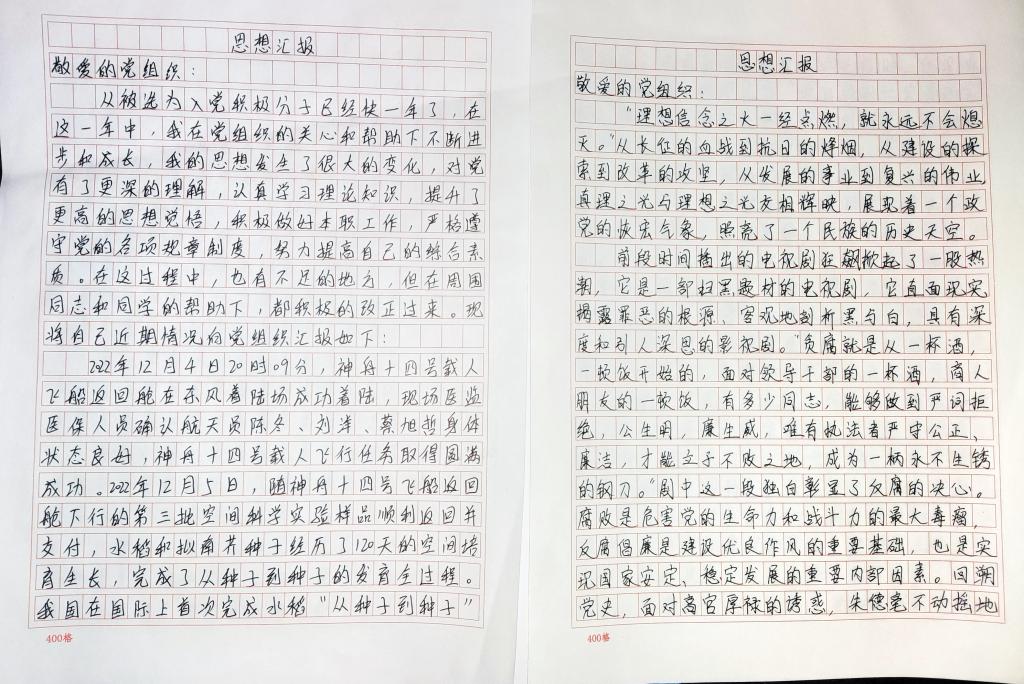 思想汇报
敬爱的党组织：
从被选为入党积极分子已经快一年了，在
这一年中，我在党组织的关心和帮助下不断进
步和成长，我的思想发生了很大的变化，对党
有了更深的理解，认真学习理论知识，提升了
更高的思想觉悟，积极做好本职工作，严格遵
守党的各项规章制度，努力提高自己的综合素
质。在这过程中，也有不足的地方，但在周围
同志和同学的帮助下，都积极的改正过来。现
将自己近期情况向党组织汇报如下：
2022年12月4日20时09分，神舟十四号载人
飞船返回舱在东风着陆场成功着陆，现场医监
医保人员确认航天员陈冬、刘洋、蔡旭哲身体
状态良好，神舟十四号载人飞行任务取得圆满
成功。2022年12月5日，随神舟十四号飞船返回
舱下行的第三批空间科学实验样品顺利返回并
交付，水稻和拟南芥种子经历了120天的空间培
育生长，完成了从种子到种子的发育全过程。
我国在国际上首次完成水稻“从种子到种子”
400格
思想汇报
敬爱的党组织：
“理想信念之火一经点燃，就永远不会熄
灭。”从长征的血战到抗日的烽烟，从建设的探
索到改革的攻坚，从发展的事业到复兴的伟业，
真理之光与理想之光交相辉映，展现着一个政
党的恢宏气象，照亮了一个民族的历史天空。
前段时间播出的电视剧狂飙掀起了一股热
潮，它是一部扫黑题材的电视剧，它直面现实
揭露罪恶的根源、客观地剖析黑与白，具有深
度和引人深思的影视剧。“贪腐就是从一杯酒，
一顿饭开始的，面对领导干部的一杯酒，商人
朋友的一顿饭，有多少同志，能够做到严词拒
绝，公生明，廉生威，唯有执法者严守公正、
廉洁，才能立于不败之地，成为一柄永不生锈
的钢刀。”剧中这一段独白彰显了反腐的决心。
腐败是危害党的生命力和战斗力的最大毒瘤，
反腐倡廉是建设优良作风的重要基础，也是实
现国家安定、稳定发展的重要内部因素。回溯
党史，面对高官厚禄的诱惑，朱德毫不动摇地
400格